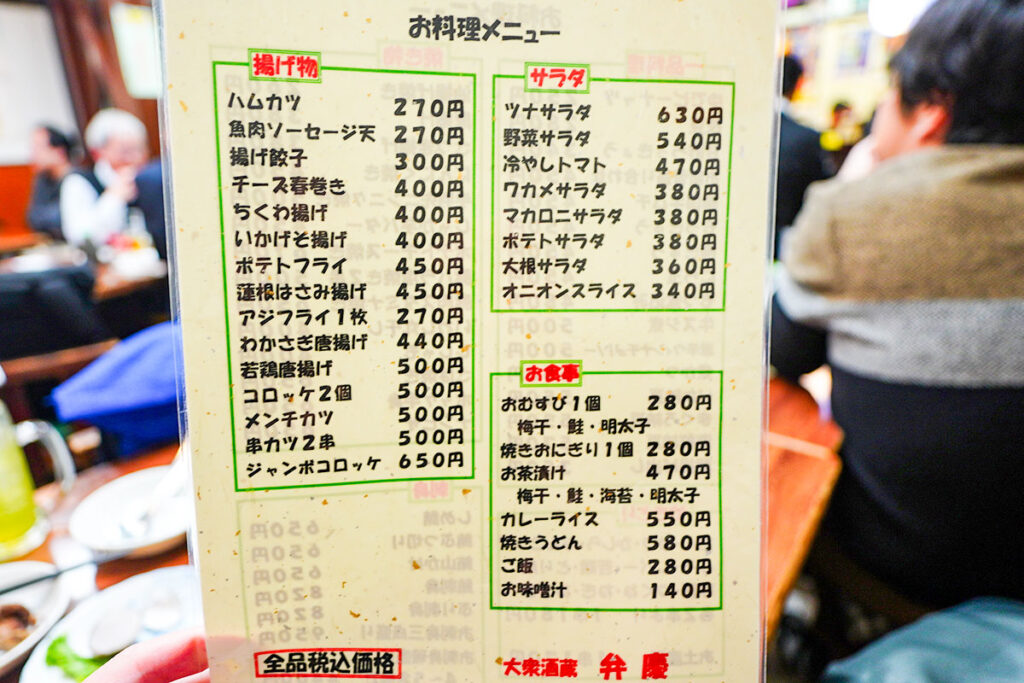 お料理メニュー
揚げ物
ハムカツ 270円
魚肉ソーセージ天 270円
揚げ餃子 300円
チーズ春巻き 400円
ちくわ揚げ 400円
いかげそ揚げ 400円
ポテトフライ 450円
蓮根はさみ揚げ 450円
アジフライ1枚 270円
わかさぎ唐揚げ 440円
若鶏唐揚げ 500円
コロッケ2個 500円
メンチカツ 500円
串カツ2串 500円
ジャンボコロッケ 650円
サラダ
ツナサラダ 630円
野菜サラダ 540円
冷やしトマト 470円
ワカメサラダ 380円
マカロニサラダ 380円
ポテトサラダ 380円
大根サラダ 360円
オニオンスライス 340円
お食事
おむすび1個 280円
梅干・鮭・明太子
焼きおにぎり1個 280円
お茶漬け 470円
梅干・鮭・海苔・明太子
カレーライス 550円
焼きうどん 580円
ご飯 280円
お味噌汁 140円
全品税込価格
大衆酒蔵 弁慶